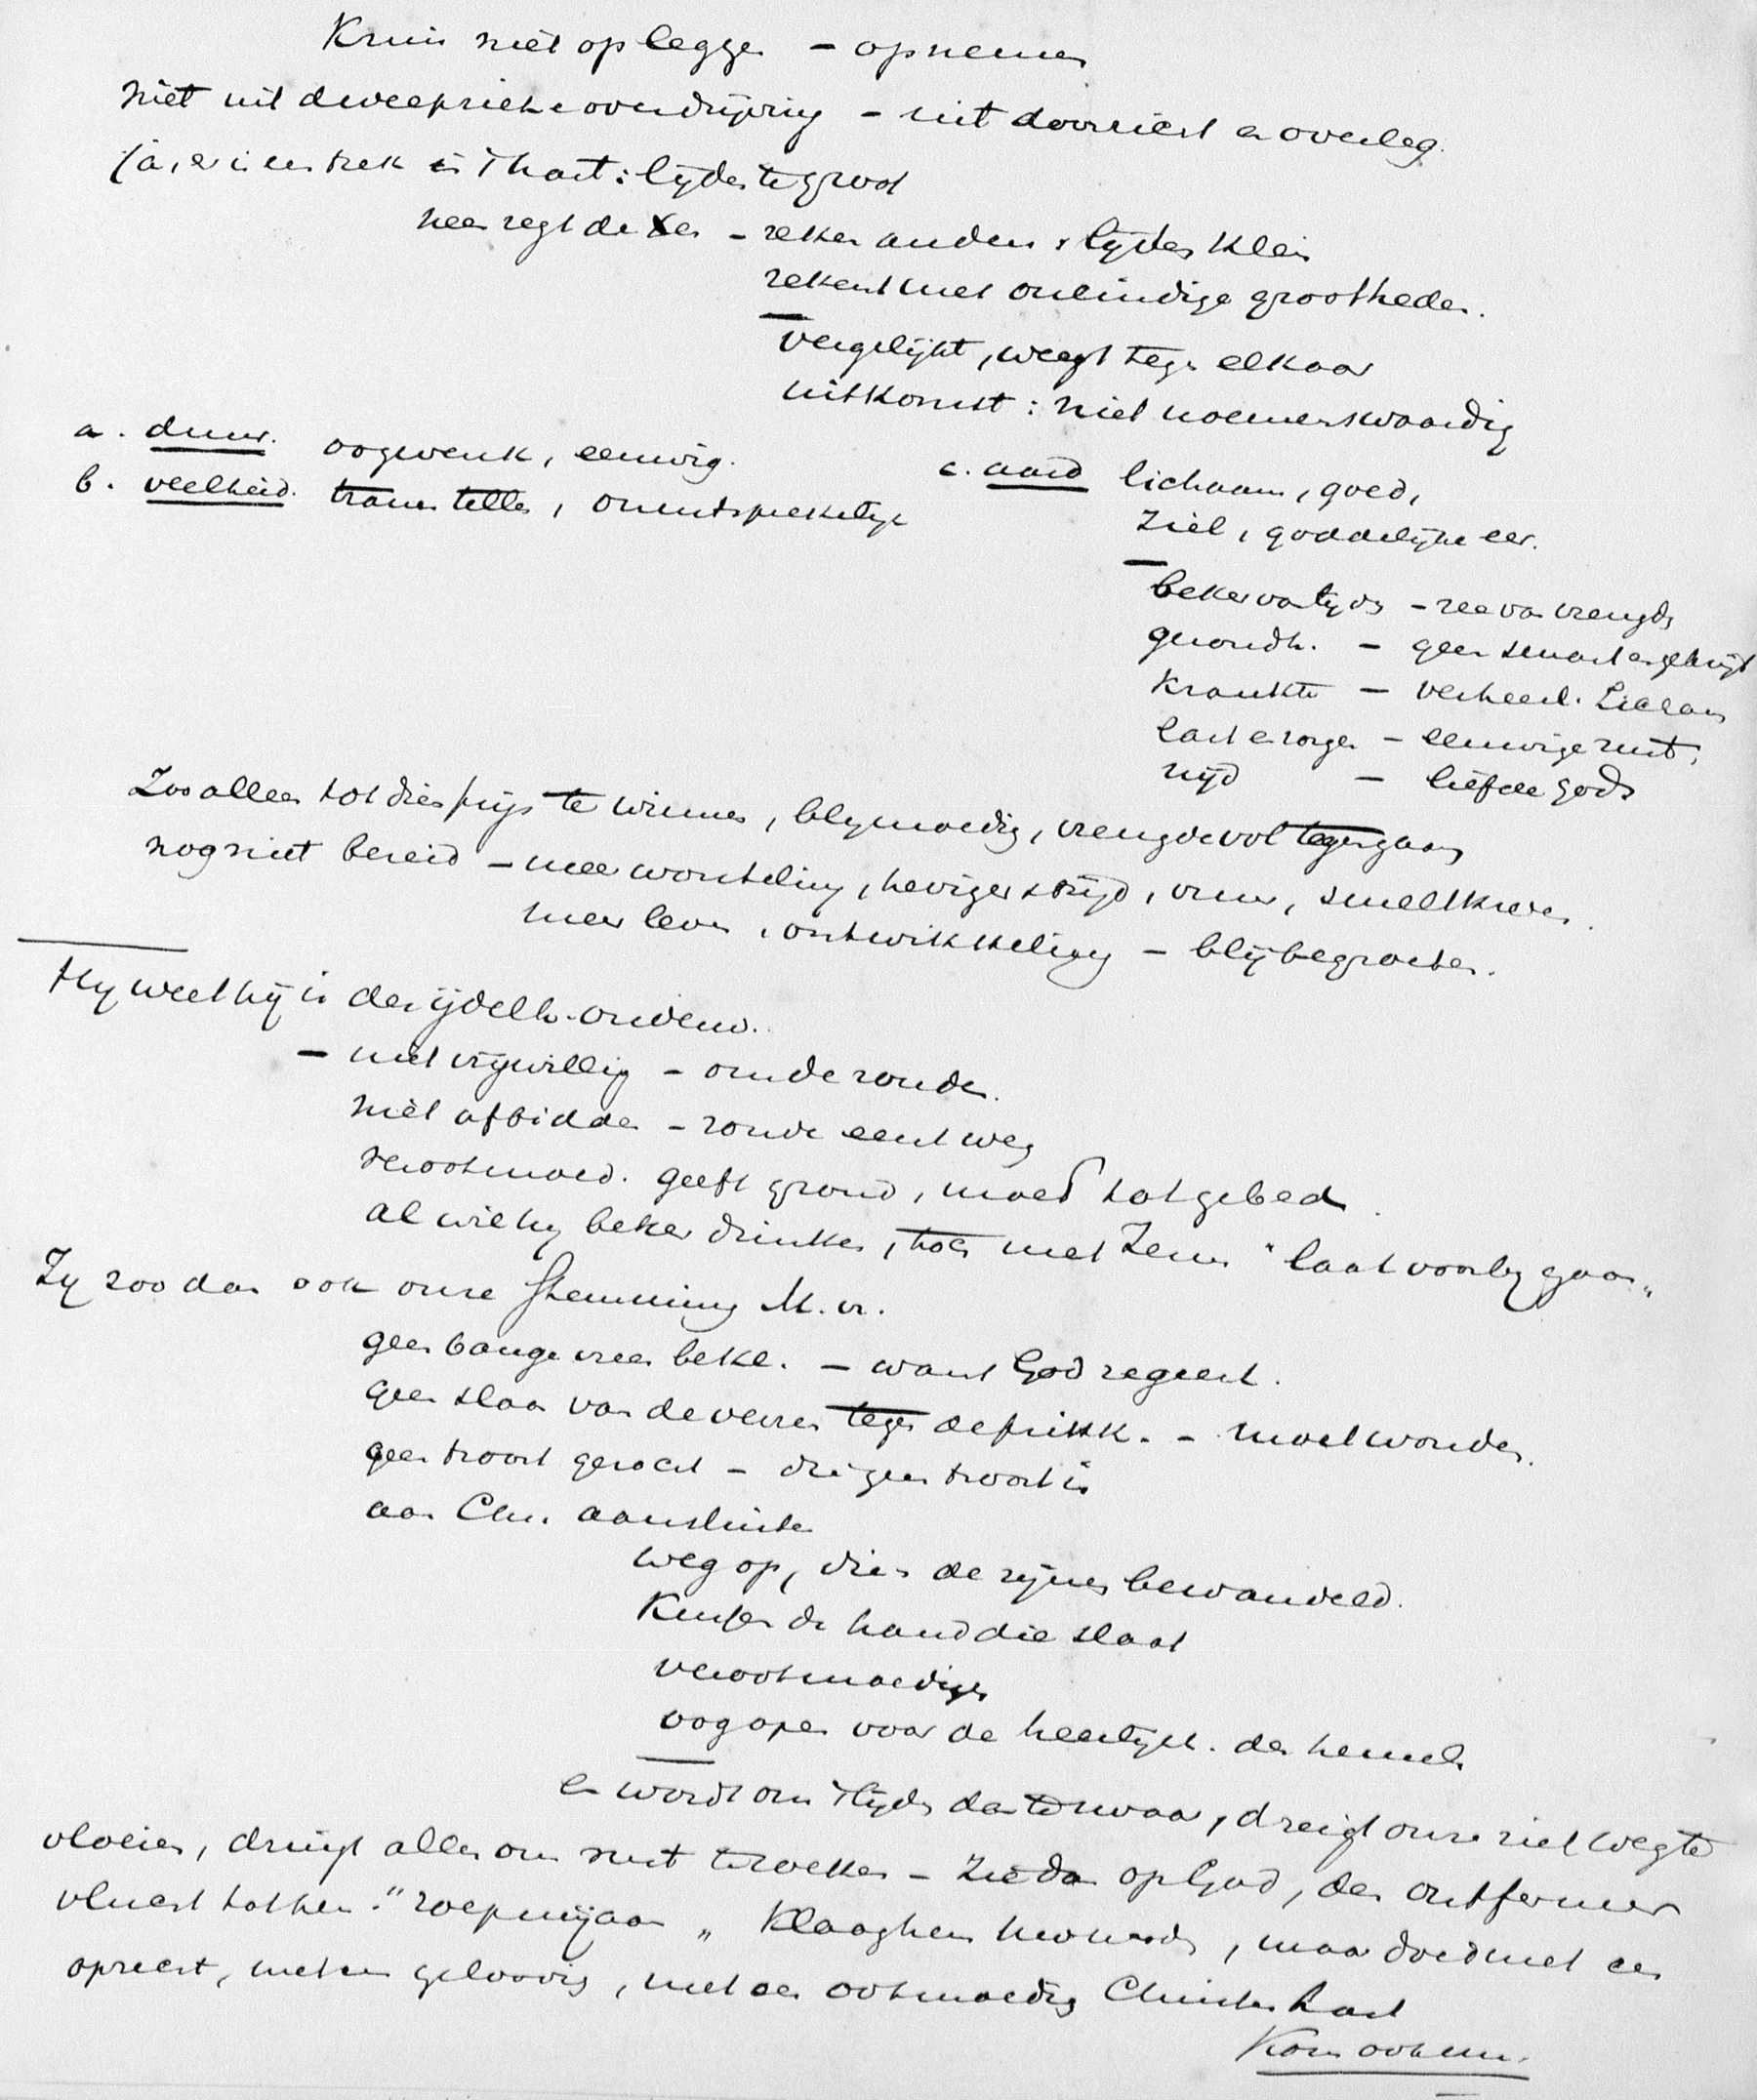 Kruis niet opleggen – opnemen
niet uit dweepzieke overdrijving – uit doorzicht en overleg.
ja, er is een trek in 't hart: lijden te groot
neen zegt de Xen – reken anders, lijden klein
rekent met oneindige grootheden.
vergelijkt, weegt tegen elkaar
uitkomst: niet noemenswaardig
a. duur. oogwenk, eeuwig.
b. veelheid. tranen tellen, onuitsprekelijk
c. aard lichaam, goed,
ziel, goddelijke eer.
beker van lijden – zee van vreugde
gezondh. – geen smart en gekrijt
krankte – verheerl. Lichaam
last en zorgen – eeuwige rust,
nijd – liefde Gods
Zoo alleen tot dien prijs te winnen, blymoedig, vreugdevol tegengaan
nog niet bereid – meer worsteling, heviger strijd, vuur, smeltkroes.
meer leven, ontwikkeling – blij begroeten.
Hy weet hij is der ijdelh. onderw.
– niet vrijwillig – om de zonde.
niet afbidden – zonde eerst weg
verootmoed. geeft grond, moed tot gebed.
al wil hy beker drinken, toch met Jezus "laat voorby gaan"
Zy zoo dan ook onze stemming M. vr.
geen bange vrees bekl. – want God regeert.
geen slaan van de verzen tegen de prikk. – moet wonden.
geen troost gezocht – die geen troost is
aan Chr. aansluiten
weg op, dien de zijnen bewandeld.
kussen de hand die slaat
verootmoedigen
oog open voor de heerlijkh. des hemels
en wordt ons 't lijden dan te zwaar, dreigt onze ziel weg te
vloeien, dringt alles ons rust te zoeken – Zie dan op God, den ontfermer
vlucht tot hem. "roep mij aan" Klaag hem uw noods, maar doe dit met een
oprecht, met een geloovig, met een ootmoedig Christen hart